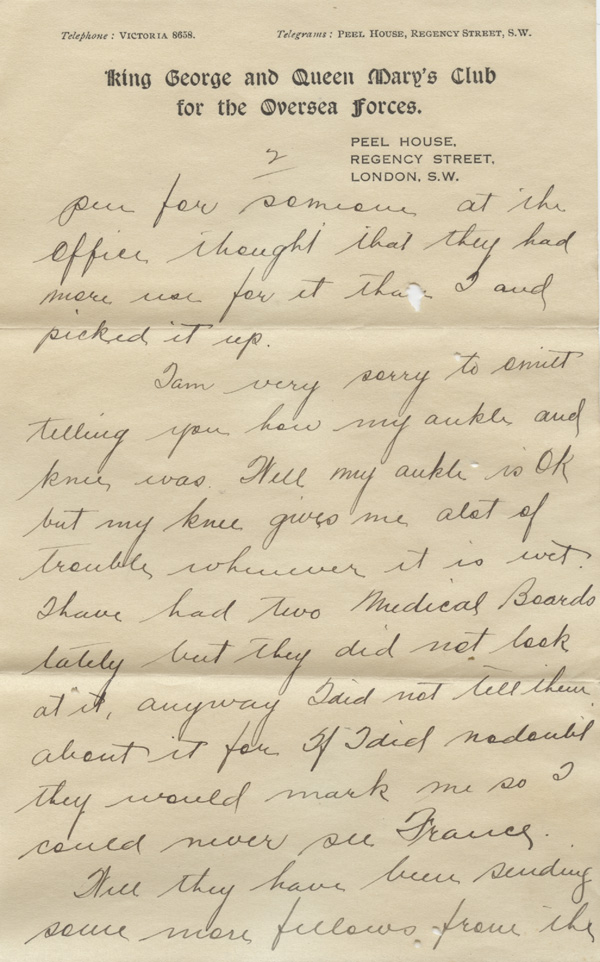 Telephone: VICTORIA 8658. Telegrams: PEEL HOUSE, REGENCY STREET, S.W.
King George and Queen Mary's Club
for the Oversea Forces.
PEEL HOUSE,
REGENCY STREET,
LONDON, S.W.
2
pen for someone at the
office thought that they had
more use for it than I and
picked it up.
I am very sorry to omitt
telling you how my ankle and
knee was. Well my ankle is OK
but my knee gives me alot of
trouble whenever it is wet.
I have had two Medical Boards
lately but they did not look
at it, anyway I did not tell them
about it for If I did nodoubt
they would mark me so I
could never see France.
Well they have been sending
some more fellows from the